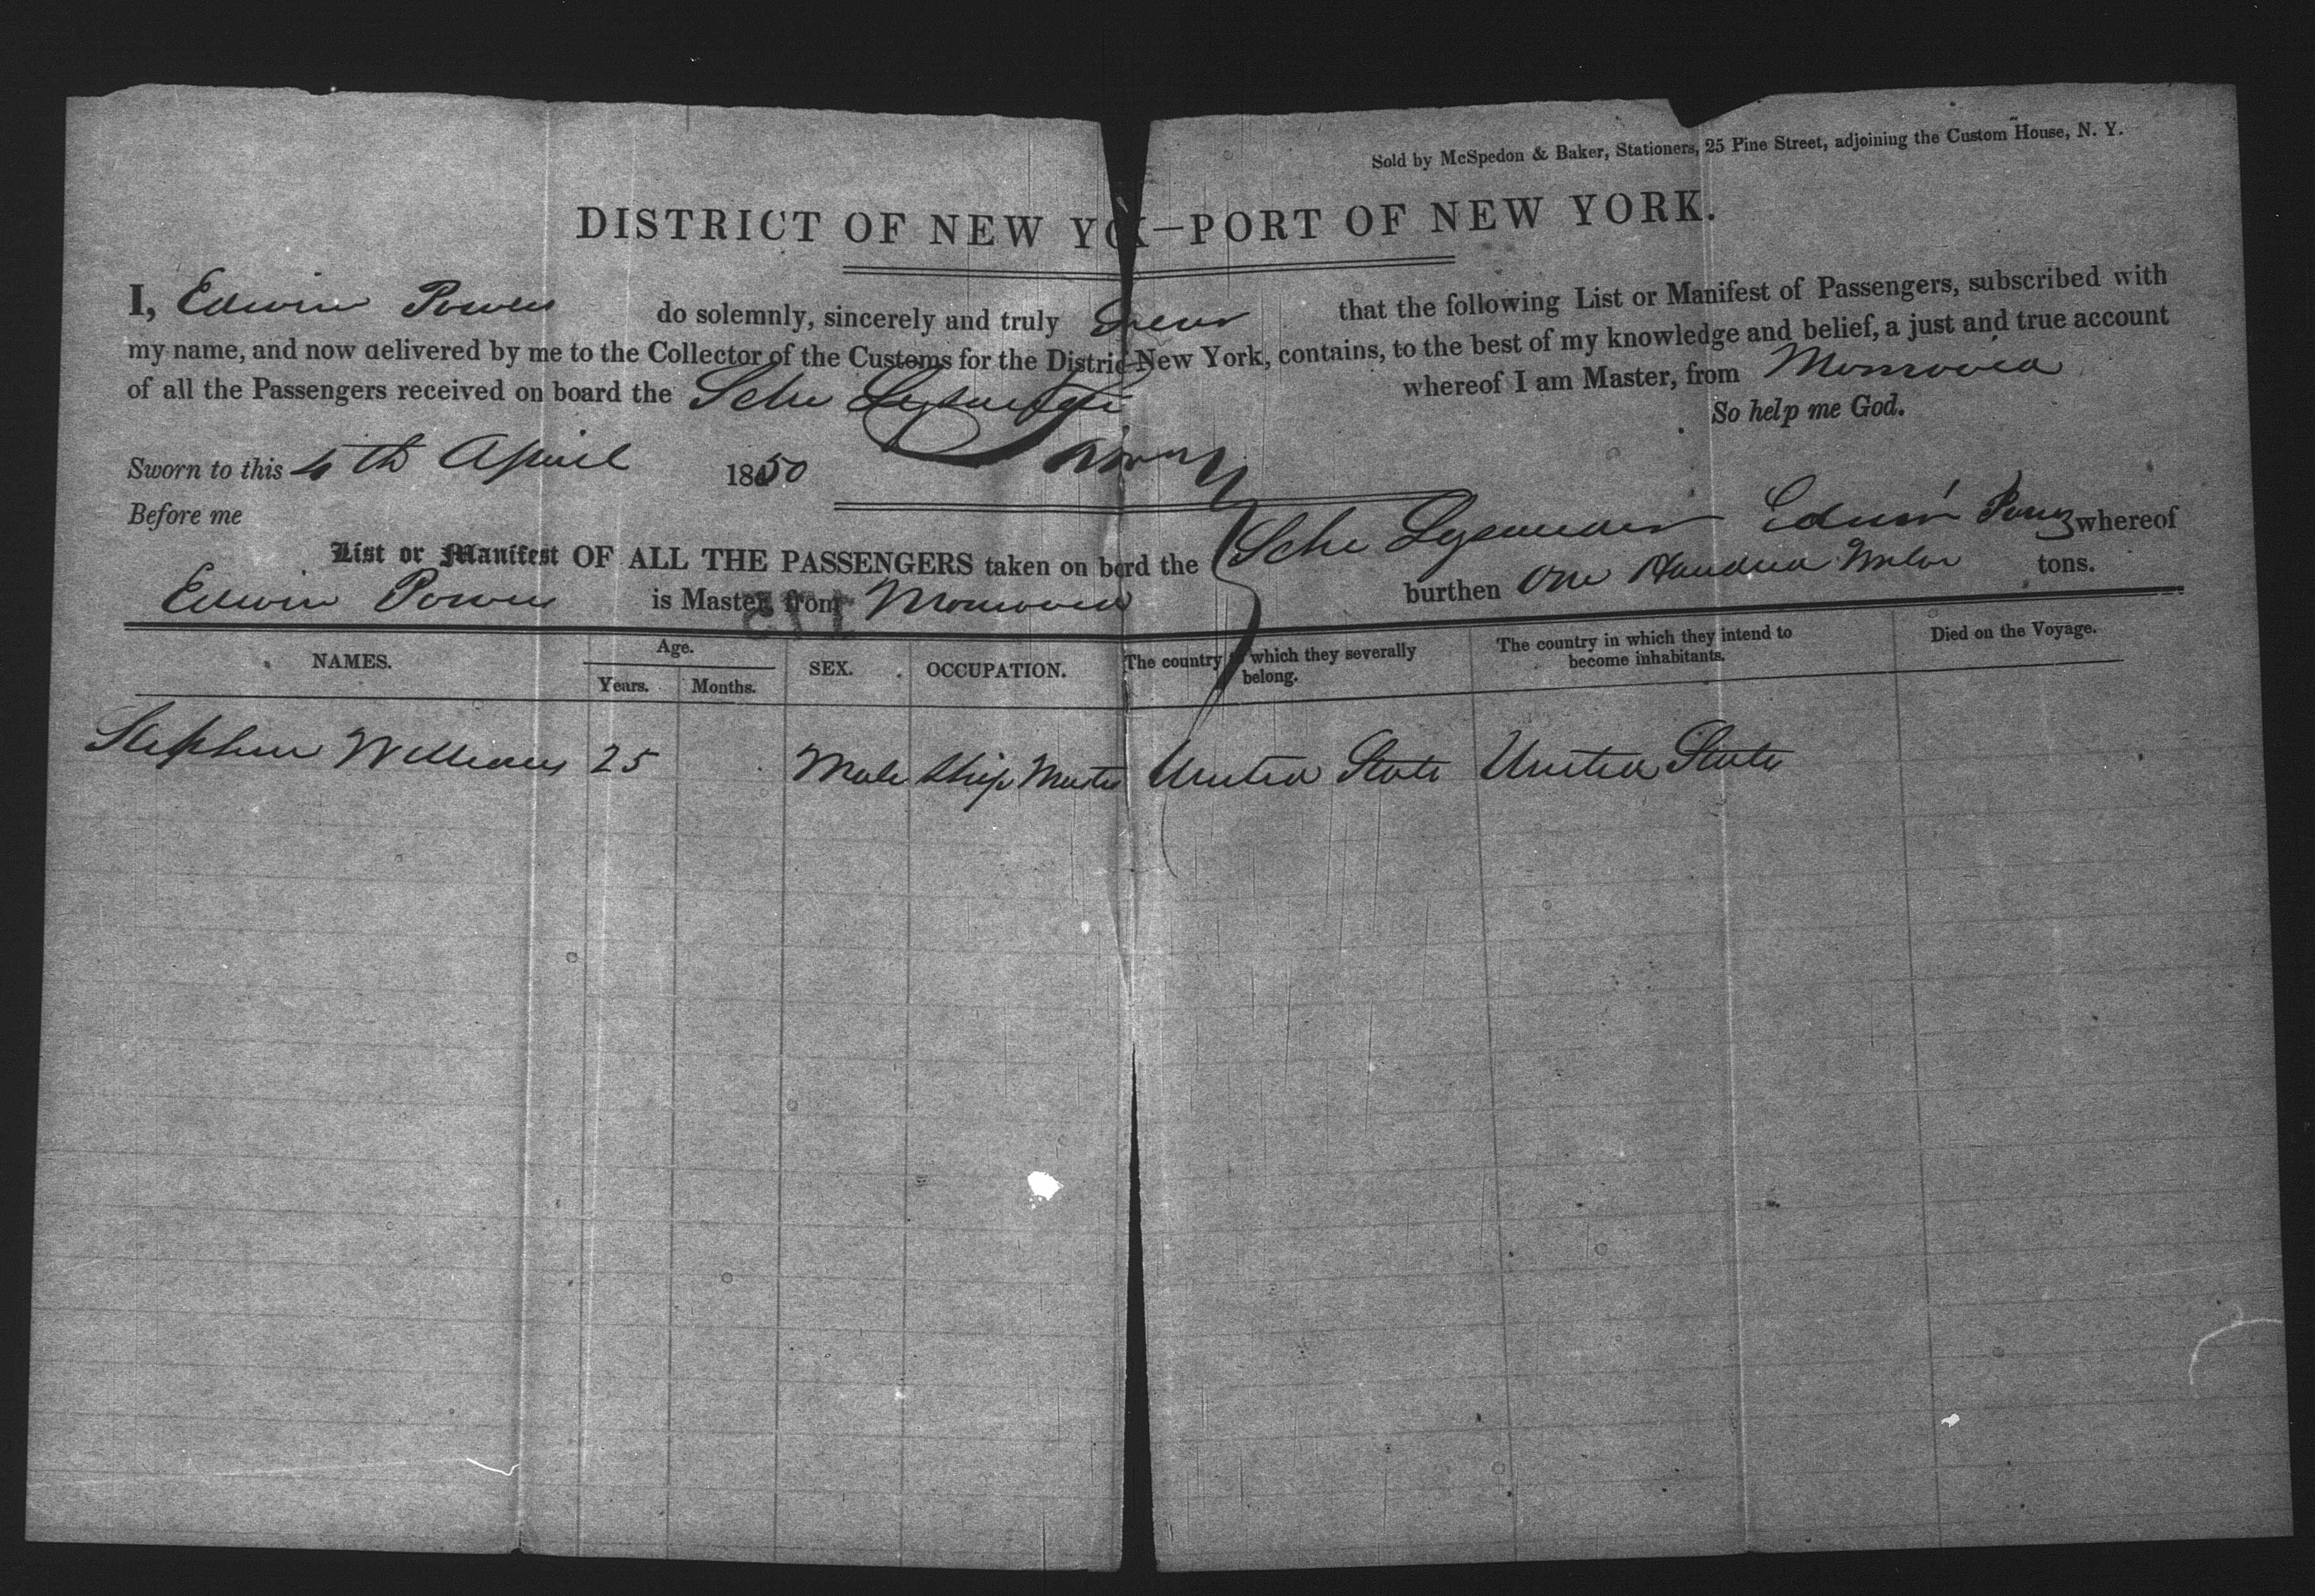 Sold by McSpedon & Baker, Stationers, 25 Pine Street, adjoining the Custom House, N. Y.
DISTRICT OF NEW YO K—PORT OF NEW YORK.
I, Edwin Powers do solemnly, sincerely and truly Swear that the following List or Manifest of Passengers, subscribed with
my name, and now delivered by me to the Collector of the Customs for the Distric New York, contains, to the best of my knowledge and belief, a just and true account
of all the Passengers received on board the Schr whereof I am Master, from Monrovia
So help me God.
Sworn to this 4th April 1850
Before me
List or Manifest OF ALL THE PASSENGERS taken on bord the Schr Lysander Edwin whereof
Edwin Powers is Master, from Monrovia burthen One Hundred tons.
NAMES. Age. SEX. OCCUPATION. The country which they severally belong. The country in which they intend to become inhabitants. Died on the Voyage.
Years. Months.
Stephen Williams 25 Male Ship Master United State United State